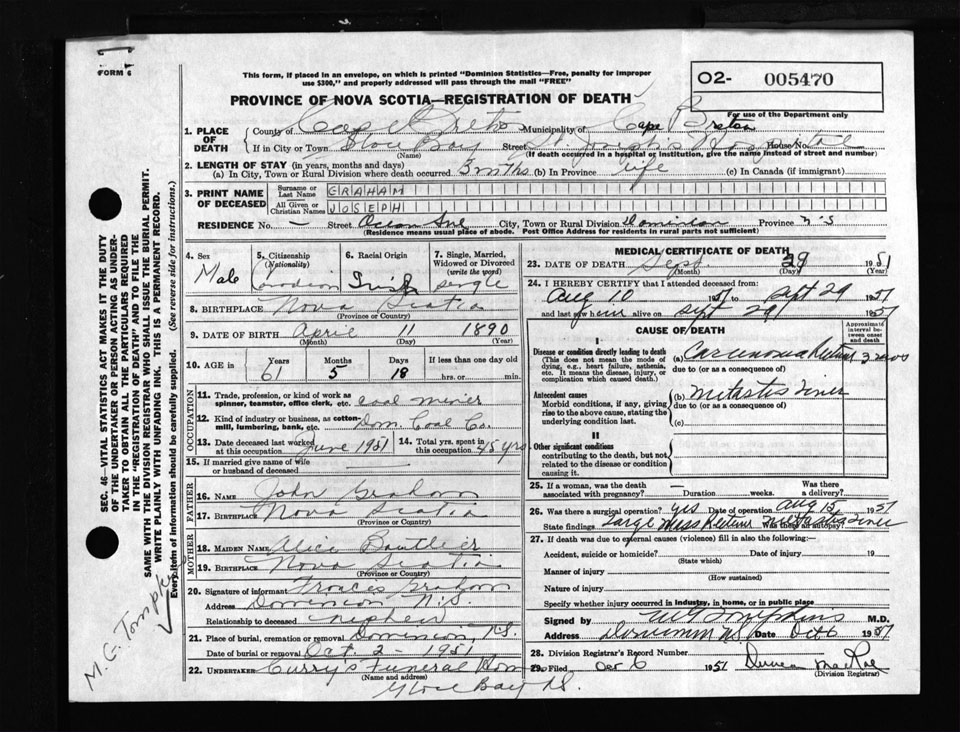 FORM 6
This form, if placed in an envelope, on which is printed "Dominion Statistics—Free, penalty for improper
use $300," and properly addressed will pass through the mail "FREE"
O2- 005470
For use of the Department only
PROVINCE OF NOVA SCOTIA—REGISTRATION OF DEATH
1. PLACE OF DEATH County of Cape Breton Municipality of Cape Breton
If in City or Town Glace Bay (Name) Street St Joseph's Hospital House No.
(If death occurred in a hospital or institution, give the name instead of street and number)
2. LENGTH OF STAY (in years, months and days)
(a) In City, Town or Rural Division where death occurred 3 mths. (b) In Province life (c) In Canada (if immigrant)
3. PRINT NAME OF DECEASED Surname or Last Name GRAHAM
All Given or Christian Names JOSEPH
RESIDENCE No. — Street Ocean Ave City, Town or Rural Division Dominion Province N.S
(Residence means usual place of abode. Post Office Address for residents in rural parts not sufficient)
4. Sex Male
5. Citizenship (Nationality) Canadian
6. Racial Origin Irish
7. Single, Married, Widowed or Divorced (write the word) single
8. BIRTHPLACE Nova Scotia
(Province or Country)
9. DATE OF BIRTH April 11 1890
(Month) (Day) (Year)
10. AGE in Years 61 Months 5 Days 18 If less than one day old hrs. or min.
OCCUPATION
11. Trade, profession, or kind of work as spinner, teamster, office clerk, etc. coal miner
12. Kind of industry or business, as cotton-mill, lumbering, bank, etc. Dom. Coal Co.
13. Date deceased last worked at this occupation June 1951
14. Total yrs. spent in this occupation 45 yrs
15. If married give name of wife or husband of deceased
FATHER
16. NAME John Graham
17. BIRTHPLACE Nova Scotia
(Province or Country)
MOTHER
18. MAIDEN NAME Alice Boutlier
19. BIRTHPLACE Nova Scotia
(Province or Country)
20. Signature of informant Frances Graham
Address Dominion N.S.
Relationship to deceased nephew
21. Place of burial, cremation or removal Dominion, N.S.
Date of burial or removal Oct. 2 - 1951
22. UNDERTAKER Curry's Funeral Home
(Name and address)
Glace Bay NS.
MEDICAL CERTIFICATE OF DEATH
23. DATE OF DEATH Sept. 29 1951
(Month) (Day) (Year)
24. I HEREBY CERTIFY that I attended deceased from:
Aug 10 1951 to Sept 29 1951
and last saw him alive on Sept 29 1951
CAUSE OF DEATH
Approximate interval between onset and death
I
Disease or condition directly leading to death
(This does not mean the mode of dying, e.g., heart failure, asthenia, etc. It means the disease, injury, or complication which caused death.)
(a) Carcinoma Rectum 3 mos
due to (or as a consequence)
Antecedent causes
Morbid conditions, if any, giving rise to the above cause, stating the underlying condition last.
(b) Metastis liver
due to (or as a consequence)
(c)
II
Other significant conditions contributing to the death, but not related to the disease or condition causing it.
25. If a woman, was the death associated with pregnancy? — Duration weeks. Was there a delivery?
26. Was there a surgical operation? yes Date of operation Aug 15 1951
State findings Large Mass Rectum Metastis liver
27. If death was due to external causes (violence) fill in also the following:—
Accident, suicide or homicide? Date of injury 19
(State which)
Manner of injury
(How sustained)
Nature of injury
Specify whether injury occurred in industry, in home, or in public place
Signed by M G Tompkins M.D.
Address Dominion NS Date Oct 6 1951
28. Division Registrar's Record Number
29. Filed Oct 6 1951 Duncan MacRae
(Division Registrar)
SEC. 46—VITAL STATISTICS ACT MAKES IT THE DUTY
OF THE UNDERTAKER OR PERSON ACTING AS UNDER-
TAKER TO OBTAIN ALL THE PARTICULARS REQUIRED
IN THE "REGISTRATION OF DEATH" AND TO FILE THE
SAME WITH THE DIVISION REGISTRAR WHO SHALL ISSUE THE BURIAL PERMIT.
WRITE PLAINLY WITH UNFADING INK. THIS IS A PERMANENT RECORD.
Every item of information should be carefully supplied. (See reverse side for instructions.)
M. G. Tompkins